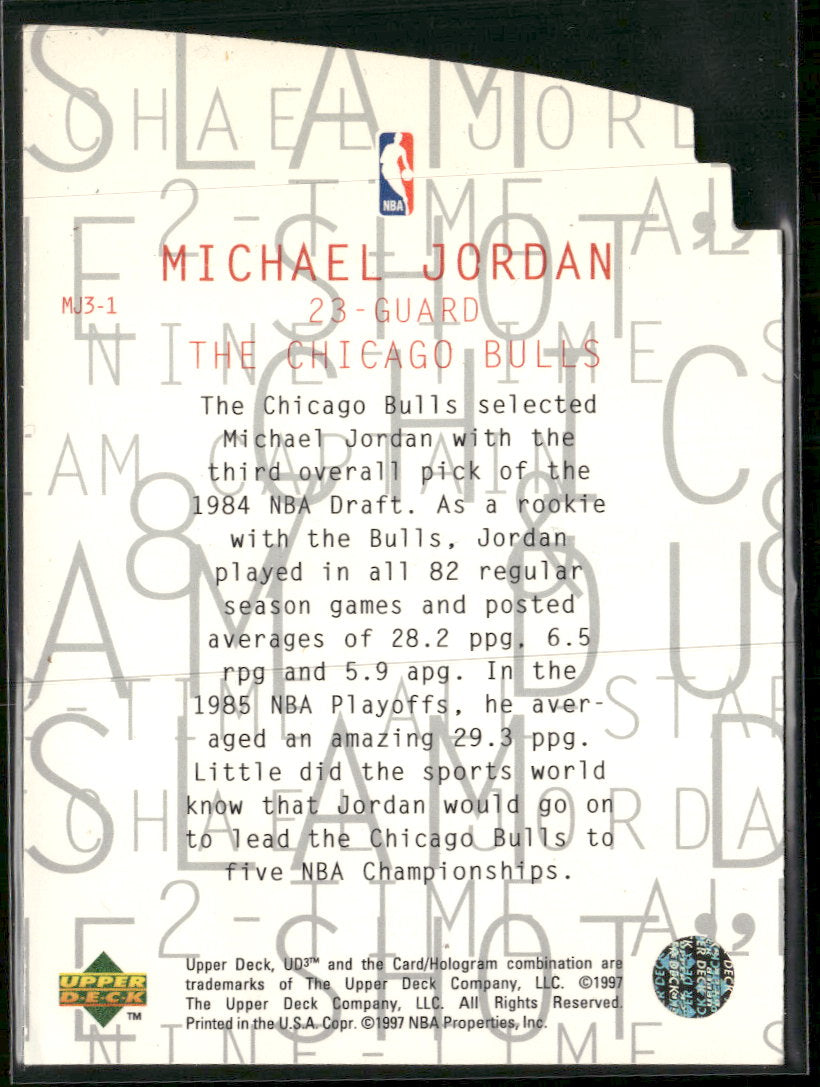 SLAM
CHAEL JORD
NBA
2-TIME AL
E SHOT ”
MICHAEL JORDAN
MJ3-1
23-GUARD
THE CHICAGO BULLS
NINE-TIME S
CHIC
The Chicago Bulls selected
Michael Jordan with the
third overall pick of the
1984 NBA Draft. As a rookie
with the Bulls, Jordan
played in all 82 regular
season games and posted
averages of 28.2 ppg, 6.5
rpg and 5.9 apg. In the
1985 NBA Playoffs, he aver-
aged an amazing 29.3 ppg.
Little did the sports world
know that Jordan would go on
to lead the Chicago Bulls to
five NBA Championships.
AM CAPTAIN
8 & 8
AM DU
-TIME ALL STAR
SLAM D
CHAEL JORDA
2-TIME AL
E SHOT ”
UPPER
DECK
TM
Upper Deck, UD3™ and the Card/Hologram combination are
trademarks of The Upper Deck Company, LLC. ©1997
The Upper Deck Company, LLC. All Rights Reserved.
Printed in the U.S.A. Copr. ©1997 NBA Properties, Inc.
NINE-TIME